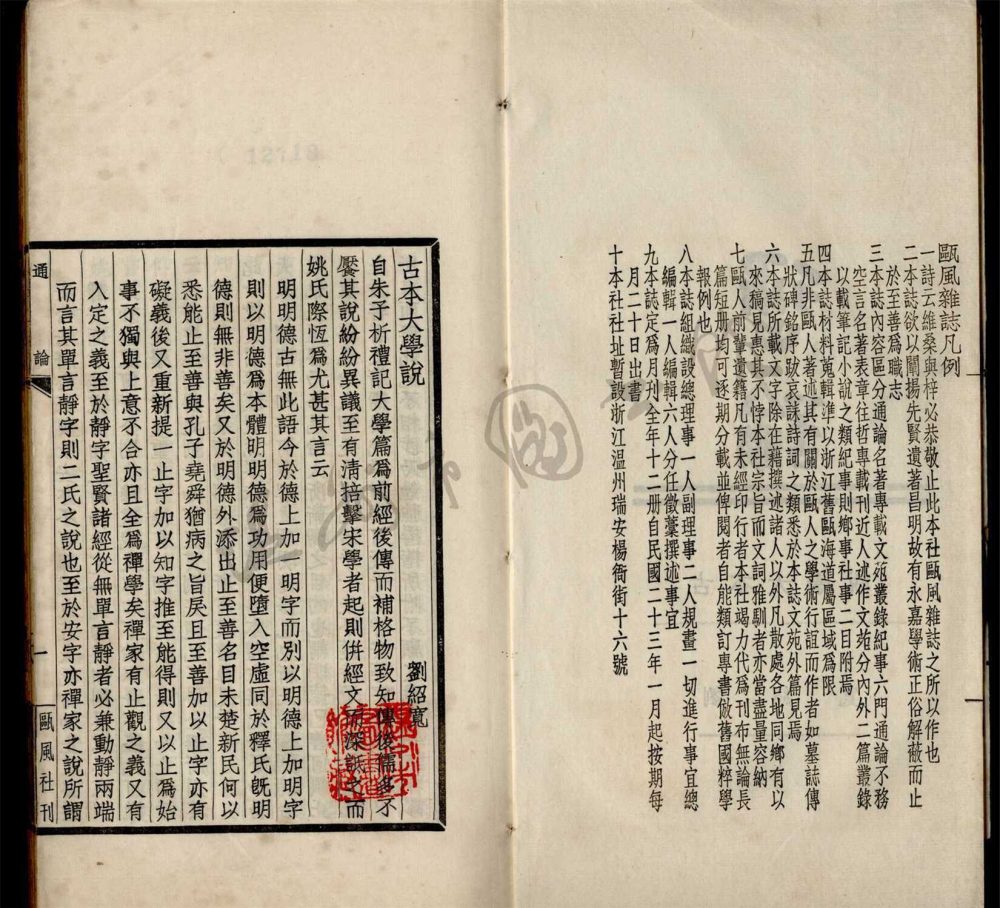 甌風雜誌凡例
一詩云維桑與梓必恭敬止此本社甌風雜誌之所以作也
二本誌欲以闡揚先賢遺著昌明故有永嘉學術正俗解蔽而止
於至善爲職志
三本誌內容區分通論名著專載文苑叢錄紀事六門通論不務
空言名著表章往哲專載刊近人述作文苑分內外二篇叢錄
以載筆記小說之類紀事則鄉事社事二目附焉
四本誌材料蒐輯準以浙江舊甌海道屬區域爲限
五凡非甌人之著述其有關於甌人之學術行誼而作者如墓誌傳
狀碑銘序跋哀誄詩詞之類悉於本誌文苑外篇見焉
六本誌所載文字除在籍撰述諸人以外凡散處各地同鄉有以
來稿見惠其不悖本社宗旨而文詞雅馴者亦當盡量容納
七甌人前輩遺籍凡有未經印行者本社竭力代爲刊布無論長
篇短册均可逐期分載並俾閱者自能類訂專書倣舊國粹學
報例也
八本誌組織設總理事一人副理事二人規畫一切進行事宜總
編輯一人編輯六人分任徵藳撰述事宜
九本誌定爲月刊全年十二册自民國二十三年一月起按期每
月二十日出書
十本社社址暫設浙江温州瑞安楊衙街十六號
古本大學說
劉紹寬
自朱子析禮記大學篇爲前經後傳而補格物致知傳後儒多不
饜其說紛紛異議至有清掊擊宋學者起則併經文而深詆之而
姚氏際恆爲尤甚其言云
明明德古無此語今於德上加一明字而別以明德上加明字
則以明德爲本體明明德爲功用便墮入空虛同於釋氏旣明
德則無非善矣又於明德外添出止至善名目未楚新民何以
悉能止至善與孔子堯舜猶病之旨戾且至善加以止字亦有
礙義後又重新提一止字加以知字推至能得則又以止爲始
事不獨與上意不合亦且全爲禪學矣禪家有止觀之義又有
入定之義至於靜字聖賢諸經從無單言靜者必兼動靜兩端
而言其單言靜字則二氏之說也至於安字亦禪家之說所謂
通論
一
甌風社刊